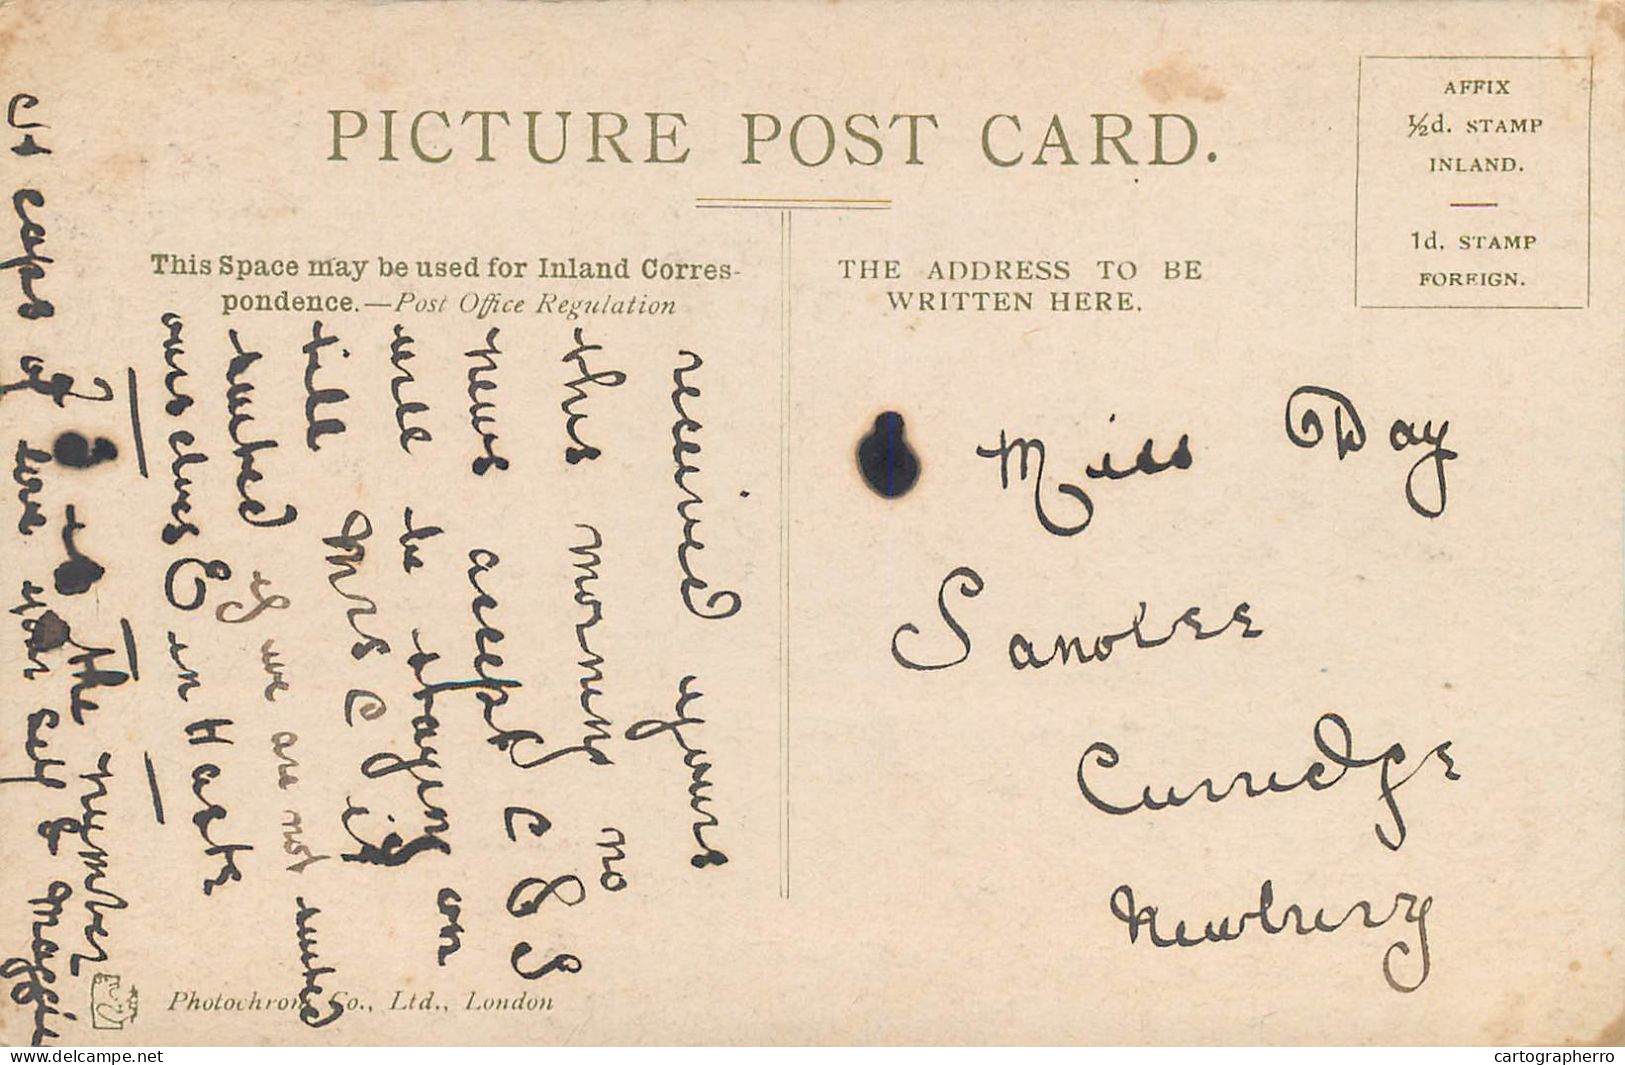 PICTURE POST CARD.
AFFIX
½d. STAMP
INLAND.
1d. STAMP
FOREIGN.
This Space may be used for Inland Corres-
pondence.—Post Office Regulation
THE ADDRESS TO BE
WRITTEN HERE.
received yours
this morning no
news accept C & S
will be staying on
till Mrs C is
suited if we are not suited
ourselves E in Haste
is the number
of love your self & Maggie
Miss Day
Curridge
Newbury
Photochrom Co., Ltd., London
www.delcampe.net
cartographerro